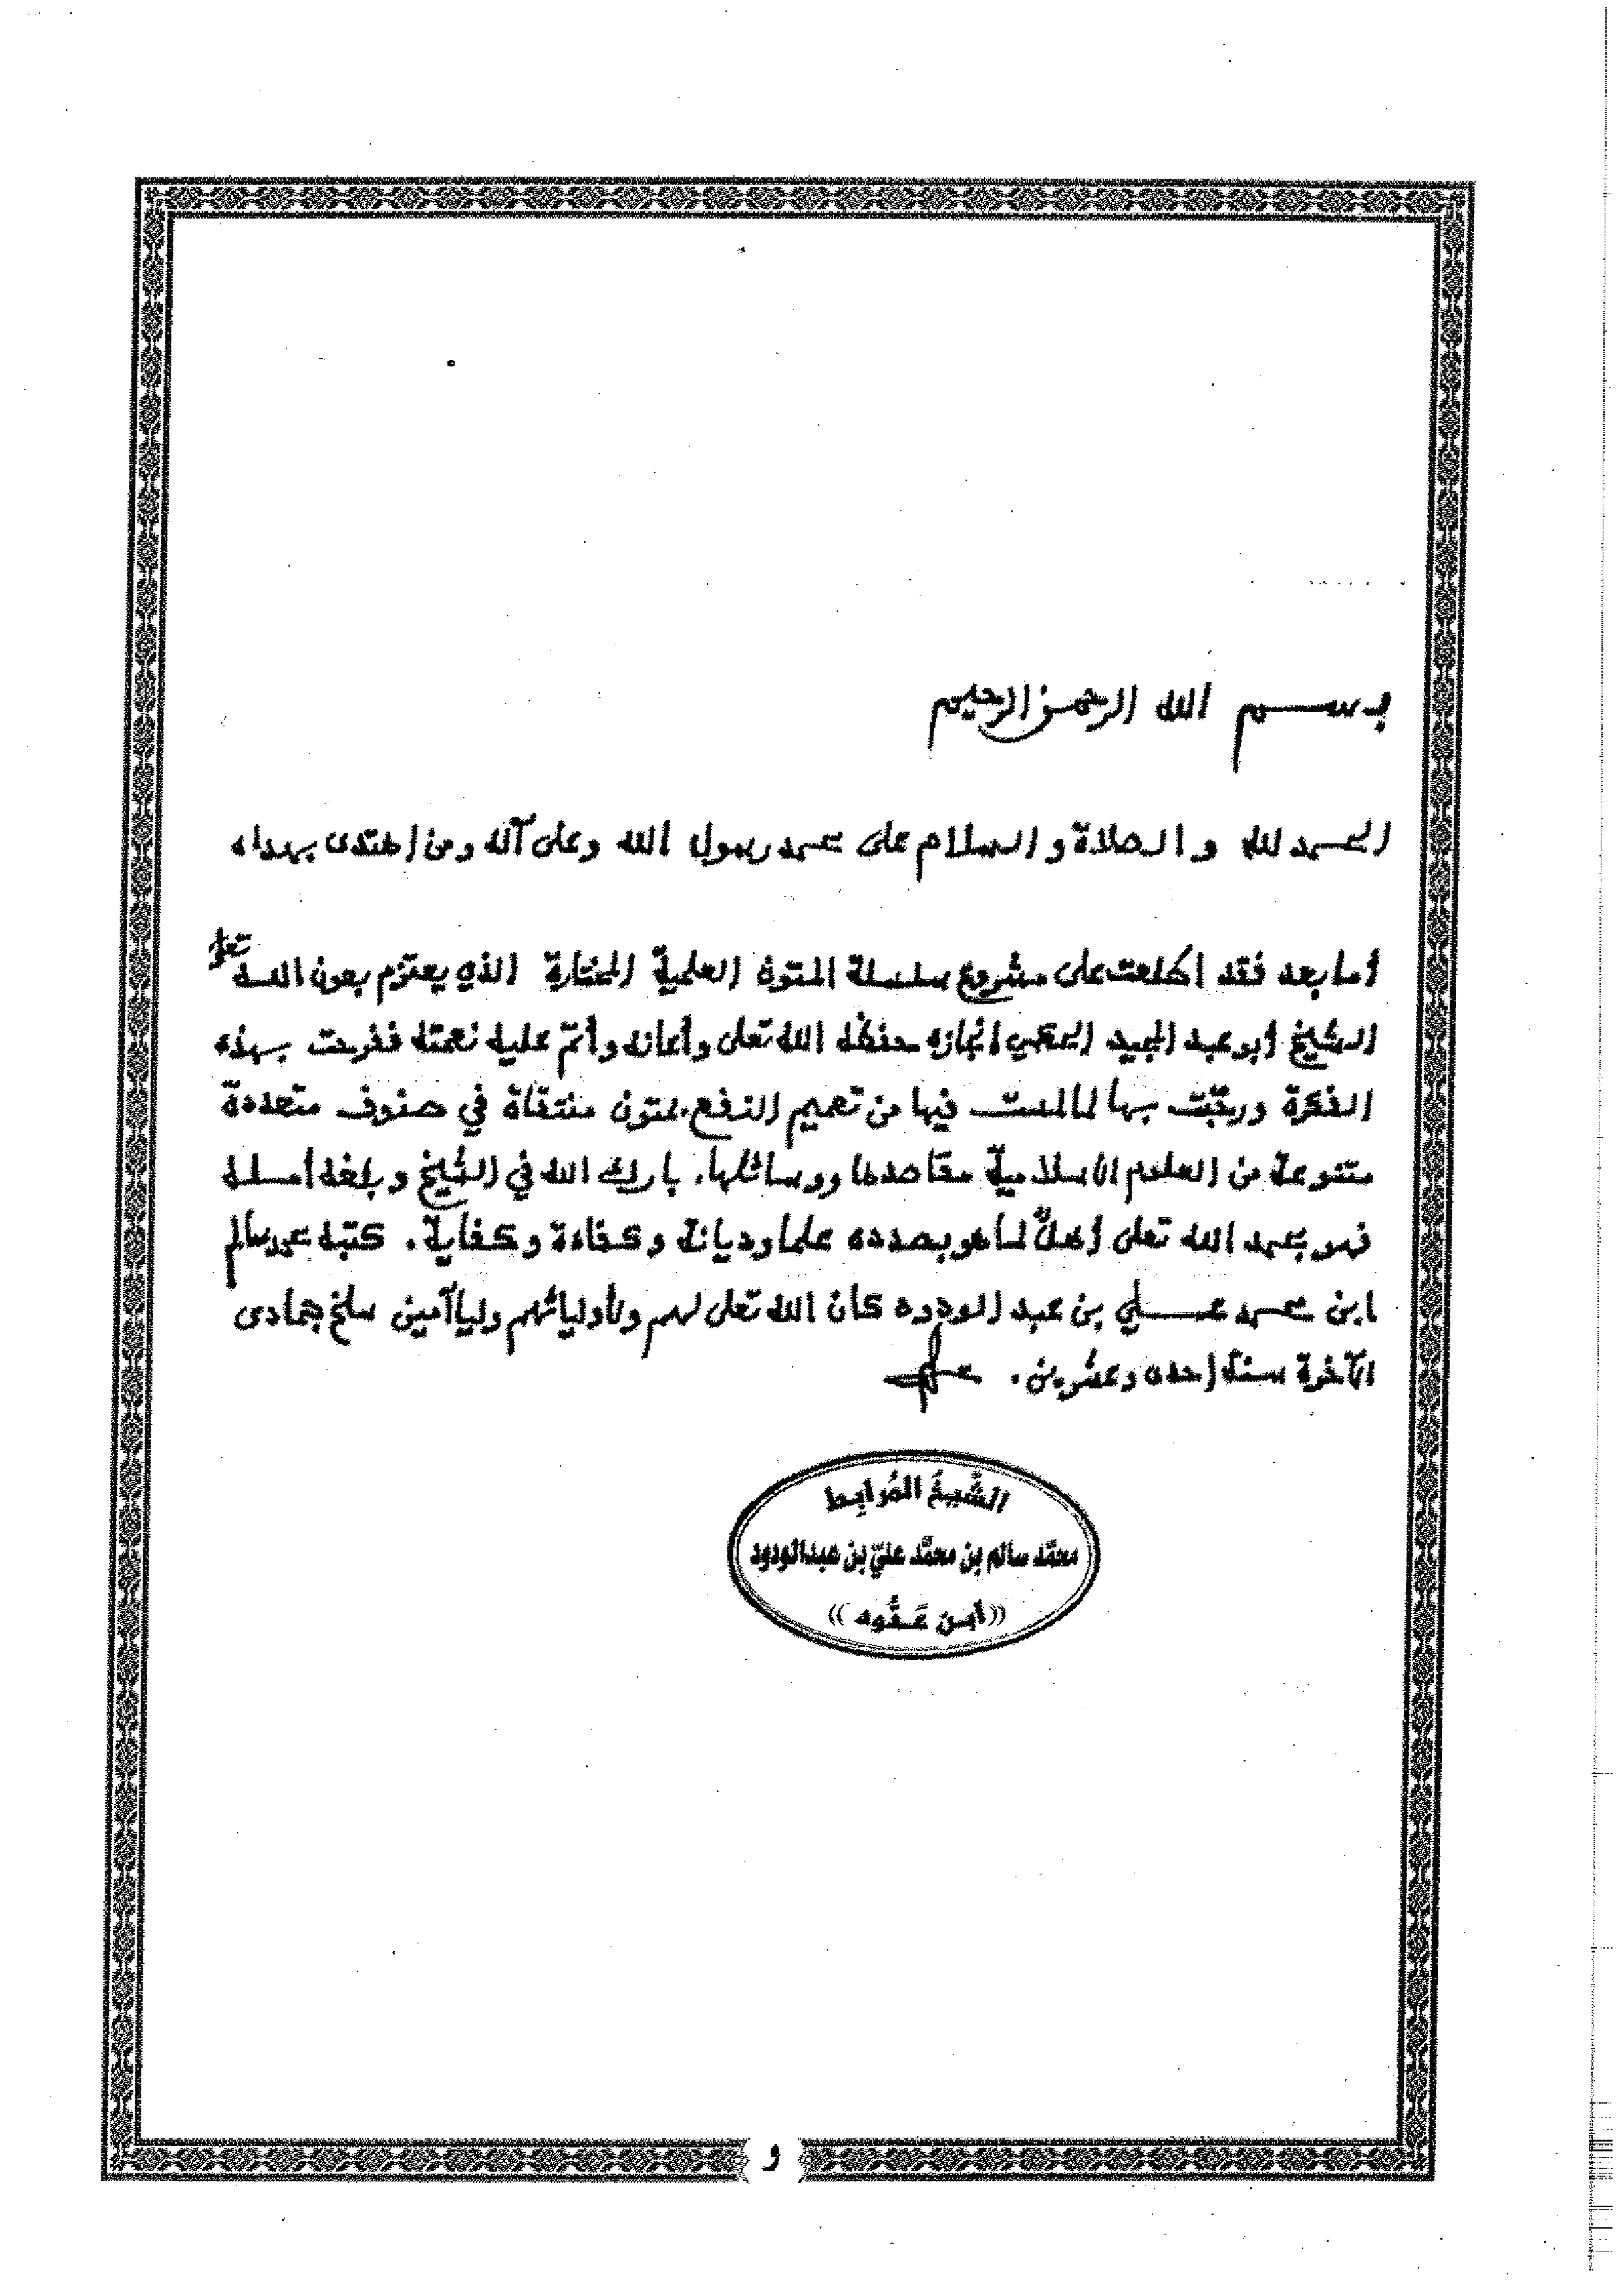 بسم الله الرحمن الرحيم
الحمد لله والصلاة والسلام على محمد رسول الله وعلى آله ومن اهتدى بهداه
أما بعد فقد اطلعت على مشروع سلسلة المتون العلمية المختارة الذي يعتزم بعون الله تعلى
الشيخ أبو عبد المجيد انجازه حفظه الله تعلى وأعانه وأتم عليه نعمته ففرحت بهذه
الفكرة ورحّبت بها لما لمست فيها من تعميم النفع بمتون منتقاة في صنوف متعددة
متنوعة من العلوم الاسلامية مقاصدها ووسائلها. بارك الله في الشيخ وبلغه أمله
فهو بحمد الله تعلى أهلٌ لما هو بصدده علما وديانة وكفاءة وكفاية. كتبه محمد سالم
ابن محمد علي بن عبد الودود كان الله تعلى لهم ولأوليائهم وليا آمين سلخ جمادى
الآخرة سنة إحدى وعشرين.
الشَّيخ المُرابِط
محمَّد سالم بن محمَّد عليّ بن عبدالودود
((ابن عَدُّود))
و